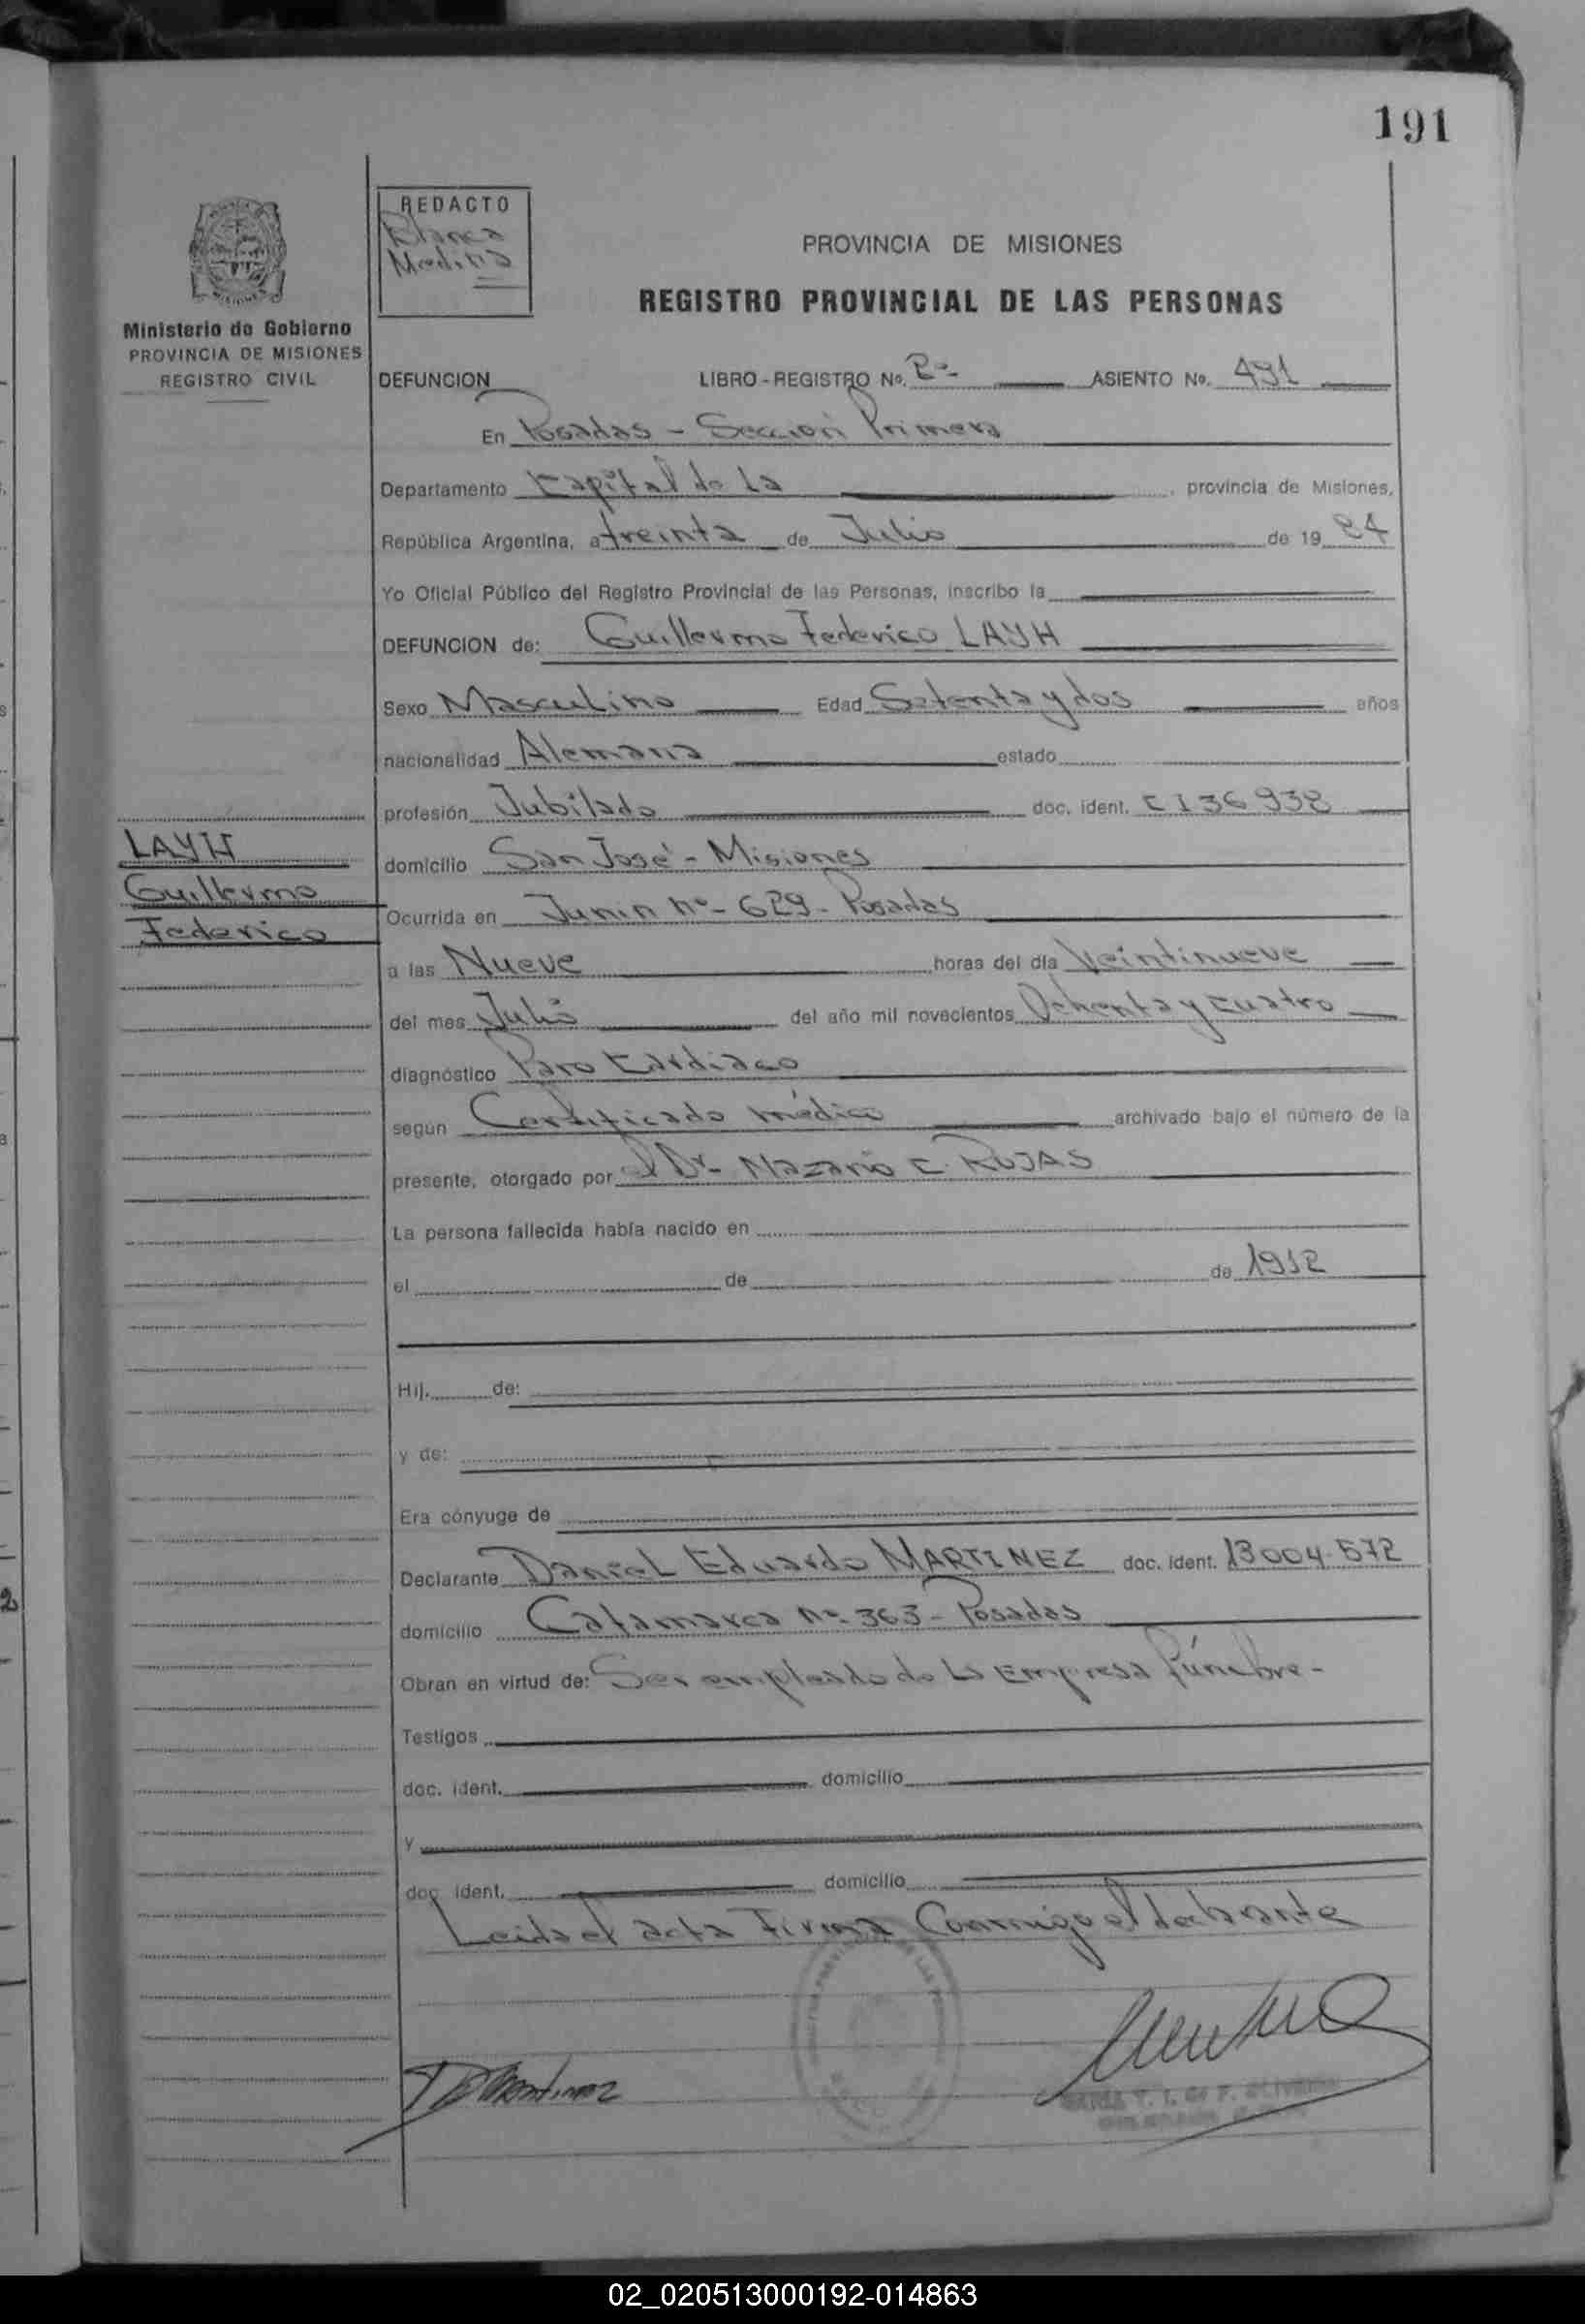 191
REDACTO
Blanca
Medina
PROVINCIA DE MISIONES
REGISTRO PROVINCIAL DE LAS PERSONAS
Ministerio de Gobierno
PROVINCIA DE MISIONES
REGISTRO CIVIL
DEFUNCION LIBRO - REGISTRO No. 2º- ASIENTO No. 491
En Posadas - Sección Primera
Departamento Capital de la , provincia de Misiones,
República Argentina, a treinta de Julio de 19 84
Yo Oficial Público del Registro Provincial de las Personas, inscribo la
DEFUNCION de: Guillermo Federico LAYH
Sexo Masculino Edad Setenta y dos años
nacionalidad Alemana estado
profesión Jubilado doc. ident. CI 36938
LAYH
Guillermo
Federico
domicilio San José - Misiones
Ocurrida en Junin nº- 629 - Posadas
a las Nueve horas del día Veintinueve
del mes Julio del año mil novecientos Ochenta y cuatro
diagnóstico Paro Cardiaco
según Certificado médico archivado bajo el número de la
presente, otorgado por el Dr- Nazario C. ROJAS
La persona fallecida había nacido en
el de de 1912
Hij. de:
y de:
Era cónyuge de
Declarante Daniel Eduardo MARTINEZ doc. ident. 13004.572
domicilio Catamarca nº- 363 - Posadas
Obran en virtud de: Ser empleado de la Empresa fúnebre -
Testigos
doc. ident. domicilio
y
doc. ident. domicilio
Leida el acta Firma Conmigo el declarante
DE Martinez
02_020513000192-014863